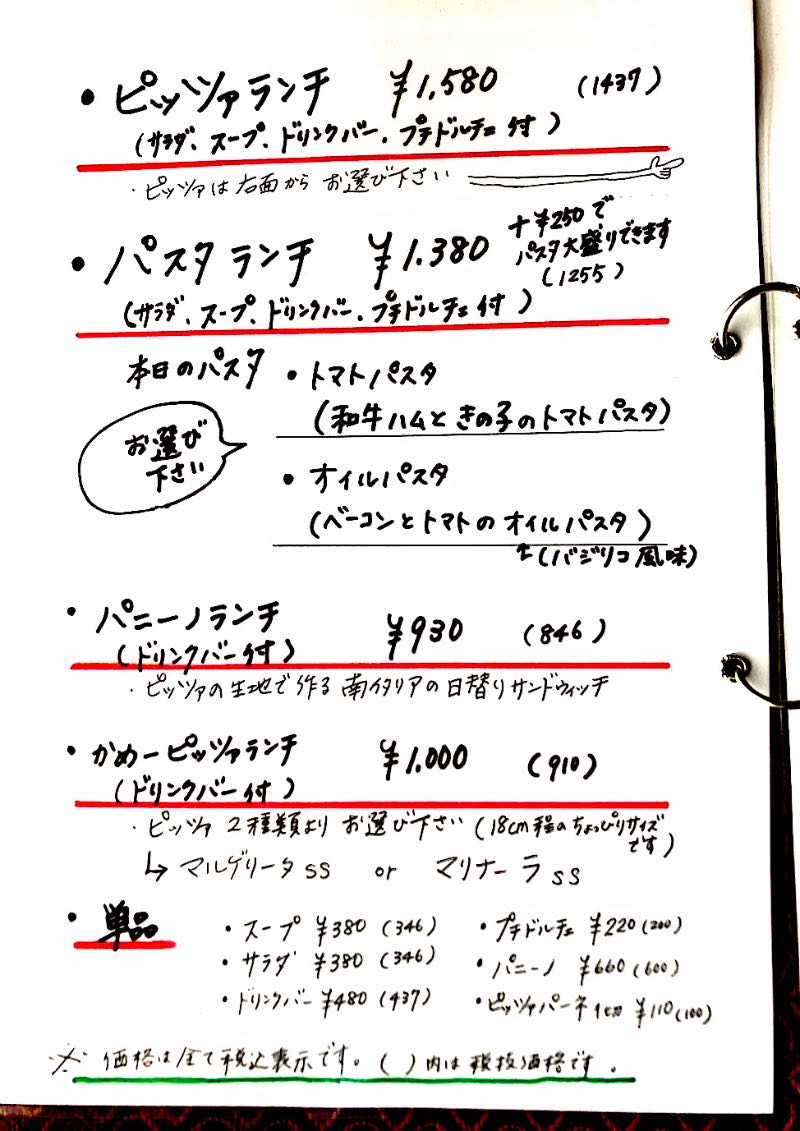 ・ピッツァランチ ¥1,580 (1437)
(サラダ、スープ、ドリンクバー、プチドルチェ付)
・ピッツァは右面から お選び下さい
・パスタランチ ¥1.380
+¥250で
パスタ大盛りできます
(1255)
(サラダ、スープ、ドリンクバー、プチドルチェ付)
本日のパスタ
お選び
下さい
・トマトパスタ
(和牛ハムときの子のトマトパスタ)
・オイルパスタ
(ベーコンとトマトのオイルパスタ)
↑(バジリコ風味)
・パニーノランチ ¥930 (846)
(ドリンクバー付)
・ピッツァの生地で作る南イタリアの日替りサンドウィッチ
・かめーピッツァランチ ¥1.000 (910)
(ドリンクバー付)
・ピッツァ 2種類より お選び下さい (18cm程のちょっぴりサイズ
です)
↳ マルゲリータss or マリナーラss
・単品
・スープ ¥380 (346) ・プチドルチェ ¥220 (200)
・サラダ ¥380 (346) ・パニーノ ¥660 (600)
・ドリンクバー ¥480 (437) ・ピッツァパーネ1切 ¥110 (100)
※ 価格は全て税込表示です。( )内は税抜価格です。